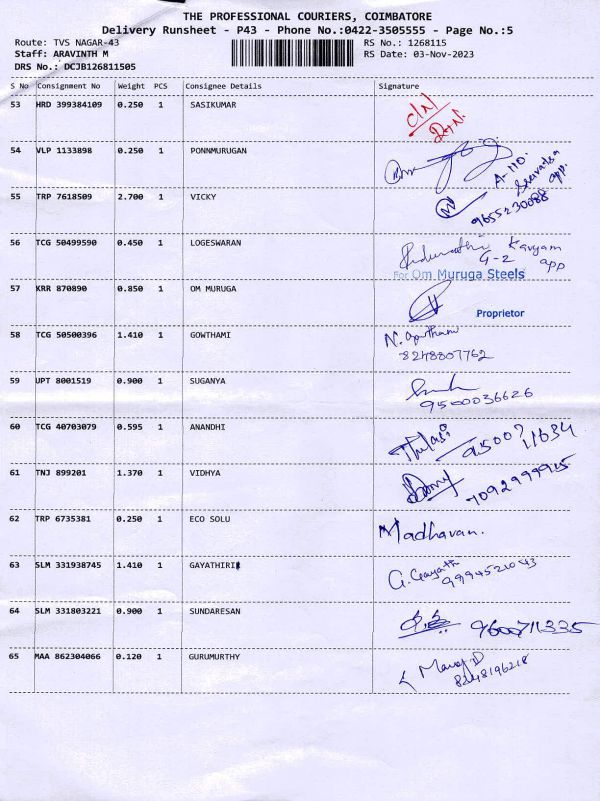 THE PROFESSIONAL COURIERS, COIMBATORE
Delivery Runsheet - P43 - Phone No.:0422-3505555 - Page No.:5
Route: TVS NAGAR-43 RS No.: 1268115
Staff: ARAVINTH M RS Date: 03-Nov-2023
DRS No.: DCJB126811505
S No Consignment No Weight PCS Consignee Details Signature
53 HRD 399384109 0.250 1 SASIKUMAR
54 VLP 1133898 0.250 1 PONNMURUGAN
A-110.
app.
55 TRP 7618509 2.700 1 VICKY
9655230088
56 TCG 50499590 0.450 1 LOGESWARAN
Kavyam
G-2 app
For Om Muruga Steels
57 KRR 870890 0.850 1 OM MURUGA
Proprietor
58 TCG 50500396 1.410 1 GOWTHAMI
8248807762
59 UPT 8001519 0.900 1 SUGANYA
9500036626
60 TCG 40703079 0.595 1 ANANDHI
Thulasi
61 TNJ 899201 1.370 1 VIDHYA
62 TRP 6735381 0.250 1 ECO SOLU
Madhavan.
63 SLM 331938745 1.410 1 GAYATHIRI
G. Gayath
9994521043
64 SLM 331803221 0.900 1 SUNDARESAN
9600711335
65 MAA 862304066 0.120 1 GURUMURTHY
Manoj D
8248196218